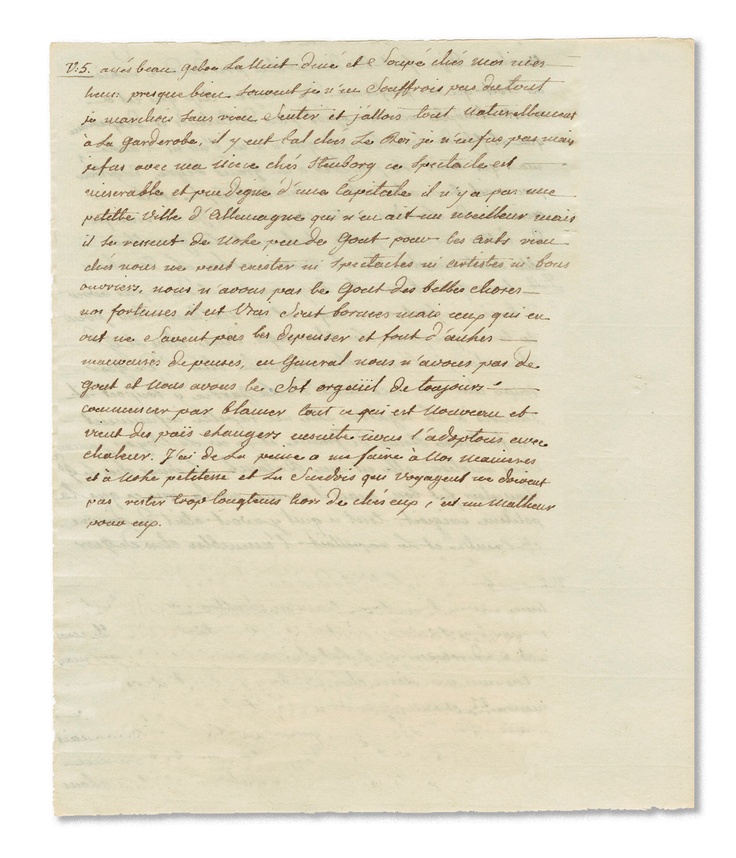 V: 5. ayés beau gelée La Nuit diné et Soupé chés moi mes
heu: presque bien Souvent je n'en Souffrois pas du tout
je marchois Sans rien Sentir et j'allois tout Naturellement
à La Garderobe, il y eut bal chés Le Roi je n'en fus pas mais
je fus avec ma Niece chés Stenborg ce Spectacle est
miserable et peu digne d'une Capitale il n'y a pas une
petitte Ville d'Allemagne qui n'en ait un meilleur mais
il se ressent de Notre peu de Gout pour les Arts rien
chés nous ne peut exister ni Spectacles ni Artistes ni bons
ouvriers, nous n'avons pas le Gout des belles choses
nos fortunes il est Vrai Sont bornées mais ceux qui en
ont ne Savent pas les depenser et font d'autres
mauvaises depenses, en General nous n'avons pas de
Gout et Nous avons le Sot orgeüil de toujours
commencer par blamer tout ce qui est Nouveau et
vient des païs etrangers ensuite nous l'adoptons avec
chaleur. J'ai de La peine a me faire à Nos Manieres
et à Notre petitesse et Les Suedois qui Voyagent ne doivent
pas rester trop longtems hors de chés eux, c'est un Malheur
pour eux.